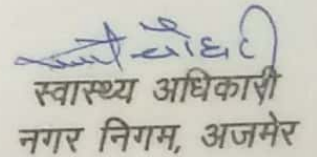 चौधरी
स्वास्थ्य अधिकारी
नगर निगम, अजमेर